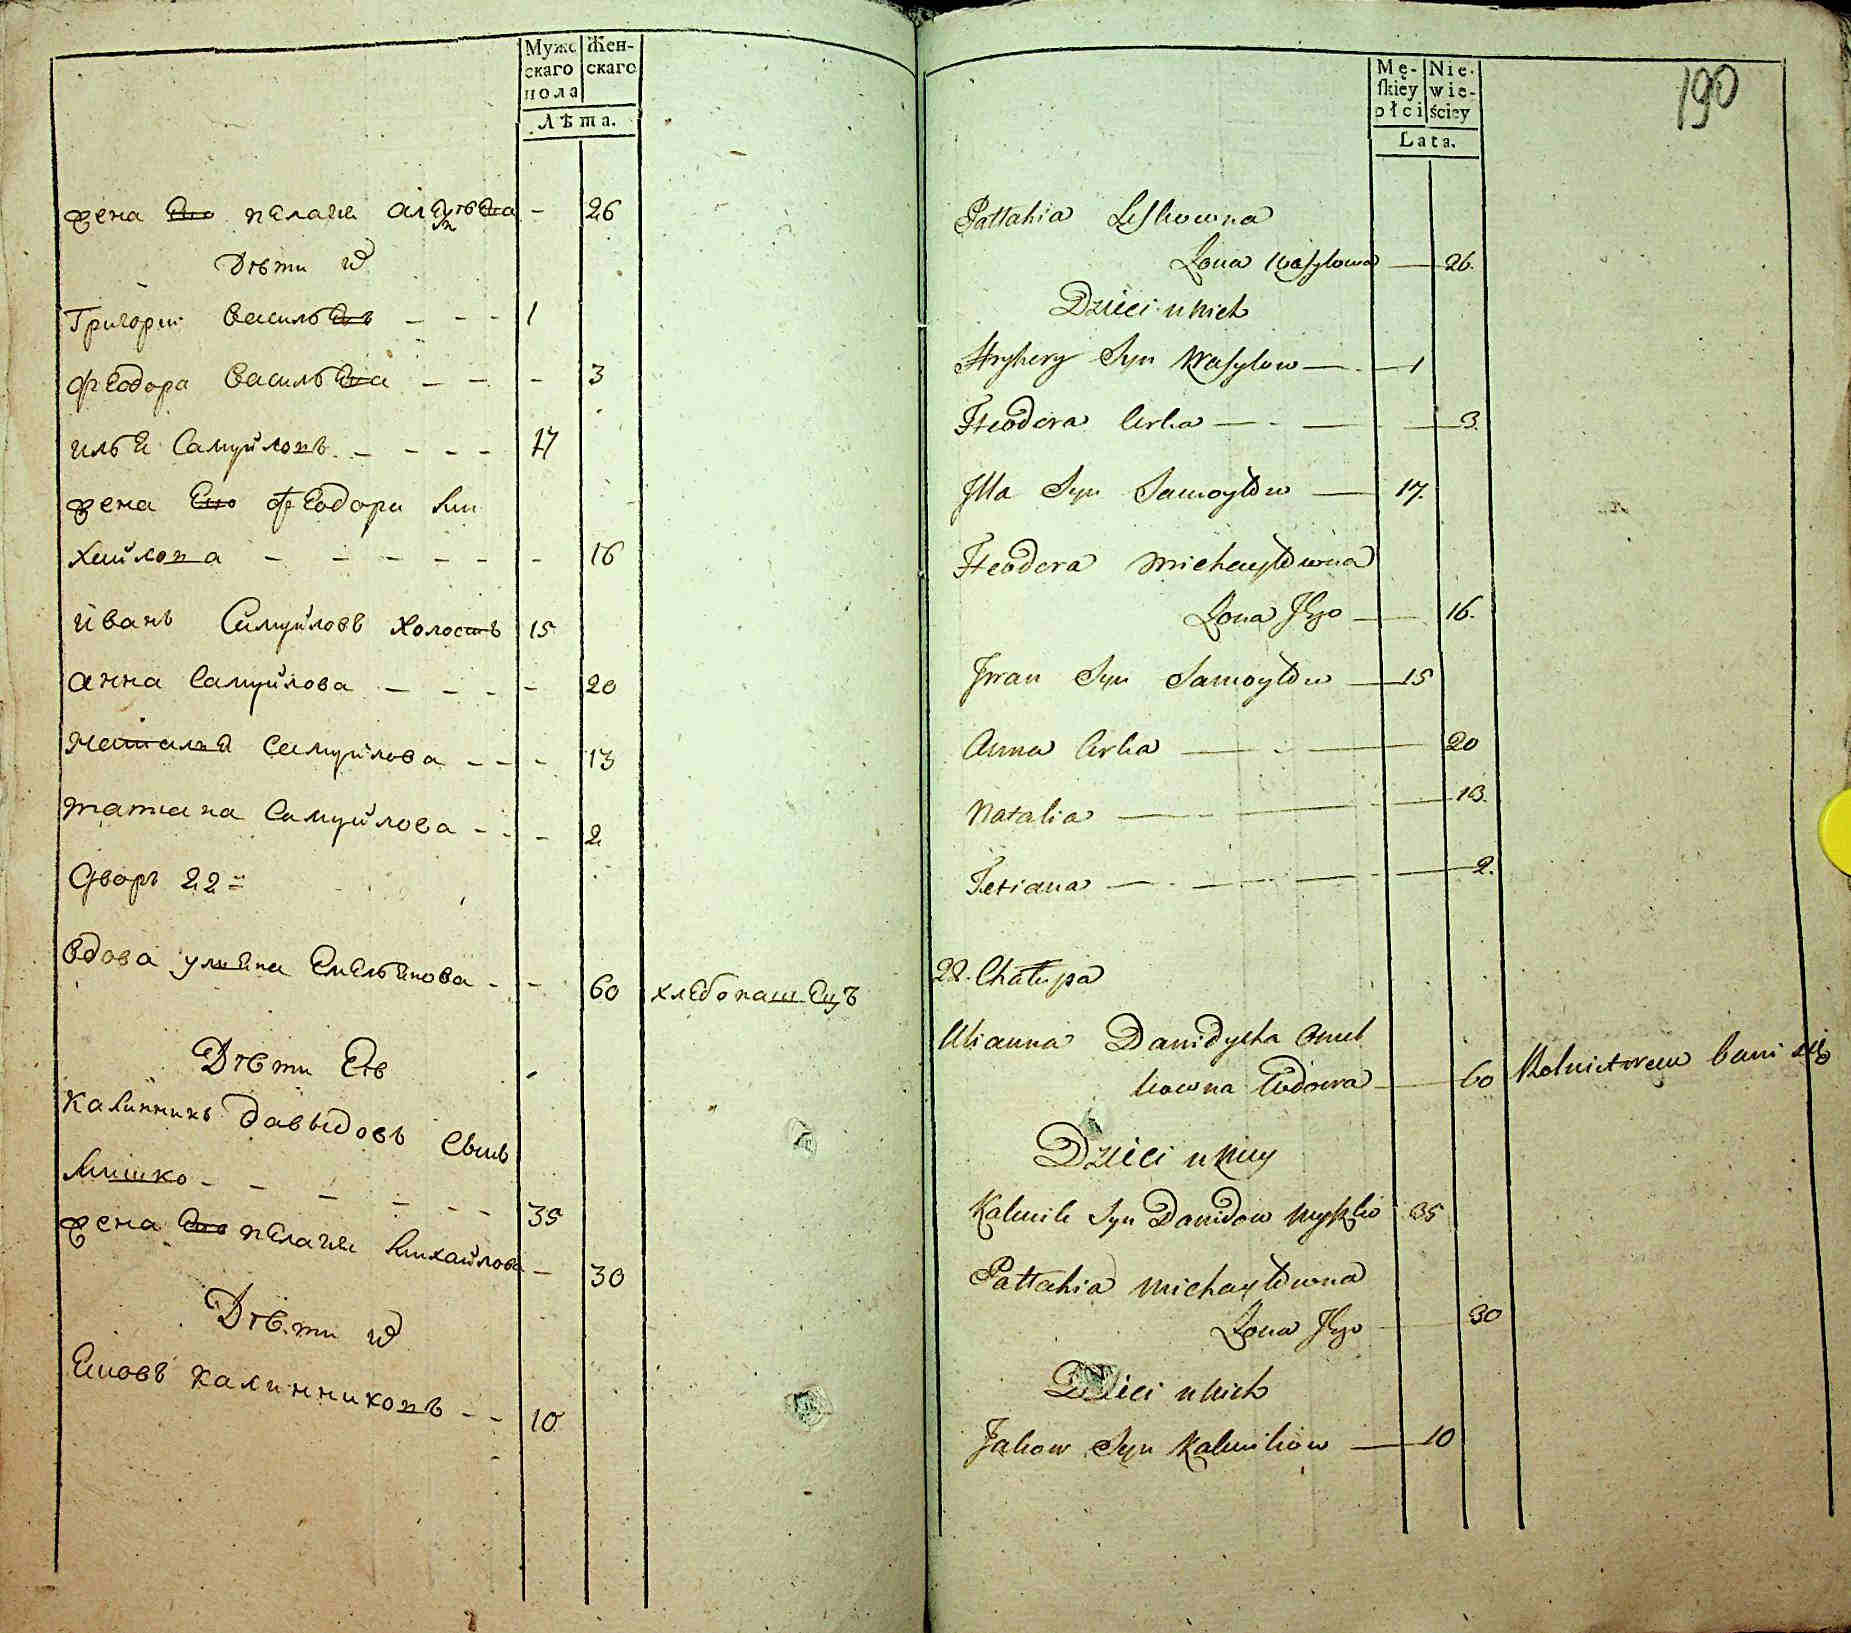 Мужс
скаго
пола
Жен-
скаго
Лѣта.
жена Его пелагия - 26
Дѣти их
Григорий василь Евъ - - - 1
феодора василь Ева - - - 3
илья Самуйловъ - - - - 17
жена Его феодора Ми
хайлова - - - - - - 16
йванъ Самуйловъ холостъ 15
анна Самуйлова - - - - 20
наталия Самуйлова - - - 13
татиана Самуйлова - - - 2
Дворъ 22 =
вдова улияна Емельянова - - 60 хлебопашецъ
Дѣти Её
Калинникъ давыдовъ
Мишко - - - - - - 35
жена Его пелагия Михайлова - 30
Дѣти их
Яковъ калинниковъ - - 10
Mę-
skiey
płci
Nie-
wie-
ściey
Lata.
190
Pałłahia Leskowna
Żona Wasylowa — 26.
Dzieci u nich
Hryhory Syn Wasylow — 1
Fteodora Corka — 3.
Illa Syn Samoyłow — 17.
Fteodora Michayłowna
Żona Jego — 16.
Jwan Syn Samoyłow — 15
Anna Corka — 20
Natalia — 13.
Tetiana — 2.
22. Chałupa
Ulianna Dawidycha Omel
kowna Wdowa — 60 Rolnictwem bawi się
Dzieci u niey
Kalenik Syn Dawidow 35
Pałłahia Michayłowna
Żona Jego — 30
Dzieci u nich
Jakow Syn Kalenikow — 10